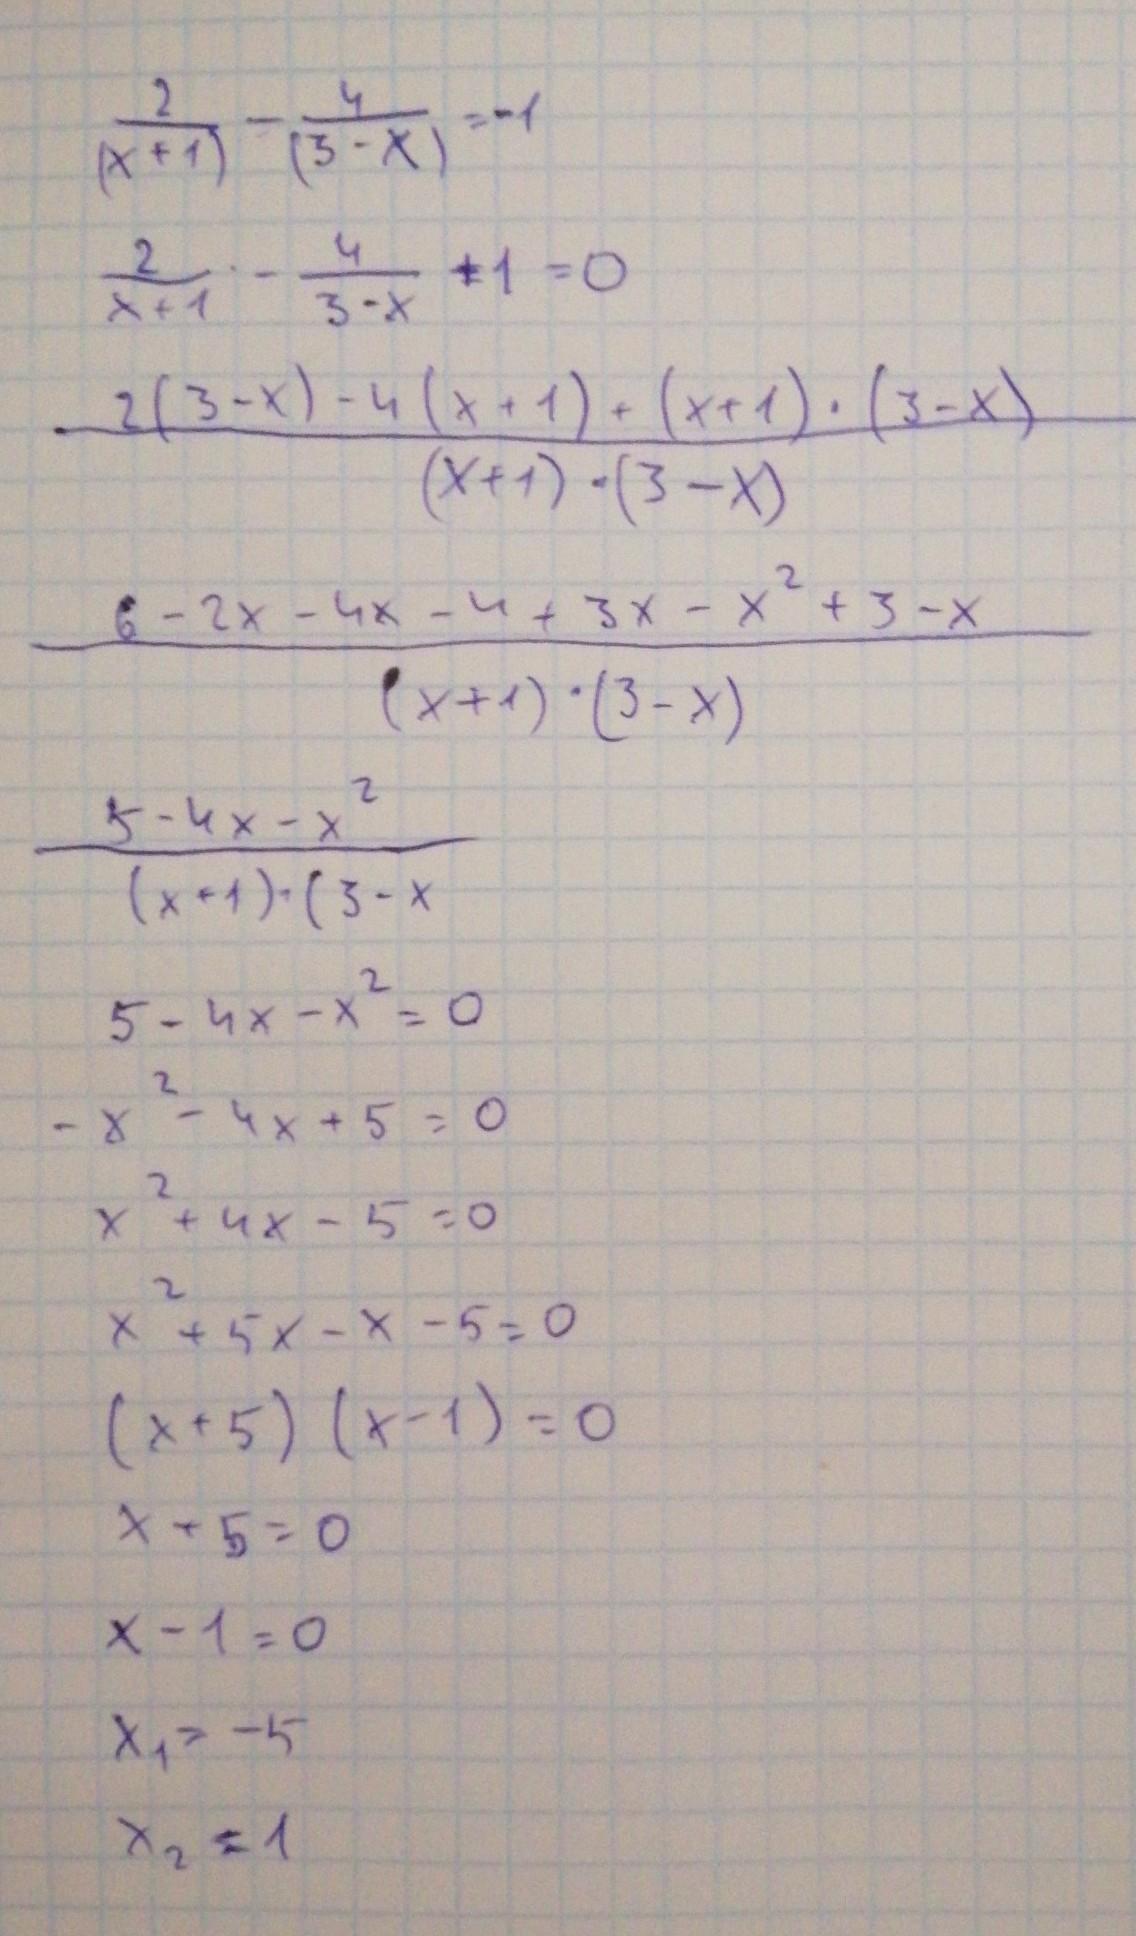 2/(x+1) - 4/(3-x) = -1
2/x+1 - 4/3-x + 1 = 0
2(3-x) - 4(x+1) + (x+1)·(3-x)
(x+1)·(3-x)
6 - 2x - 4x - 4 + 3x - x² + 3 - x
(x+1)·(3-x)
5 - 4x - x²
(x+1)·(3-x
5 - 4x - x² = 0
- x² - 4x + 5 = 0
x² + 4x - 5 = 0
x² + 5x - x - 5 = 0
(x+5) (x-1) = 0
x + 5 = 0
x - 1 = 0
x₁ = -5
x₂ = 1